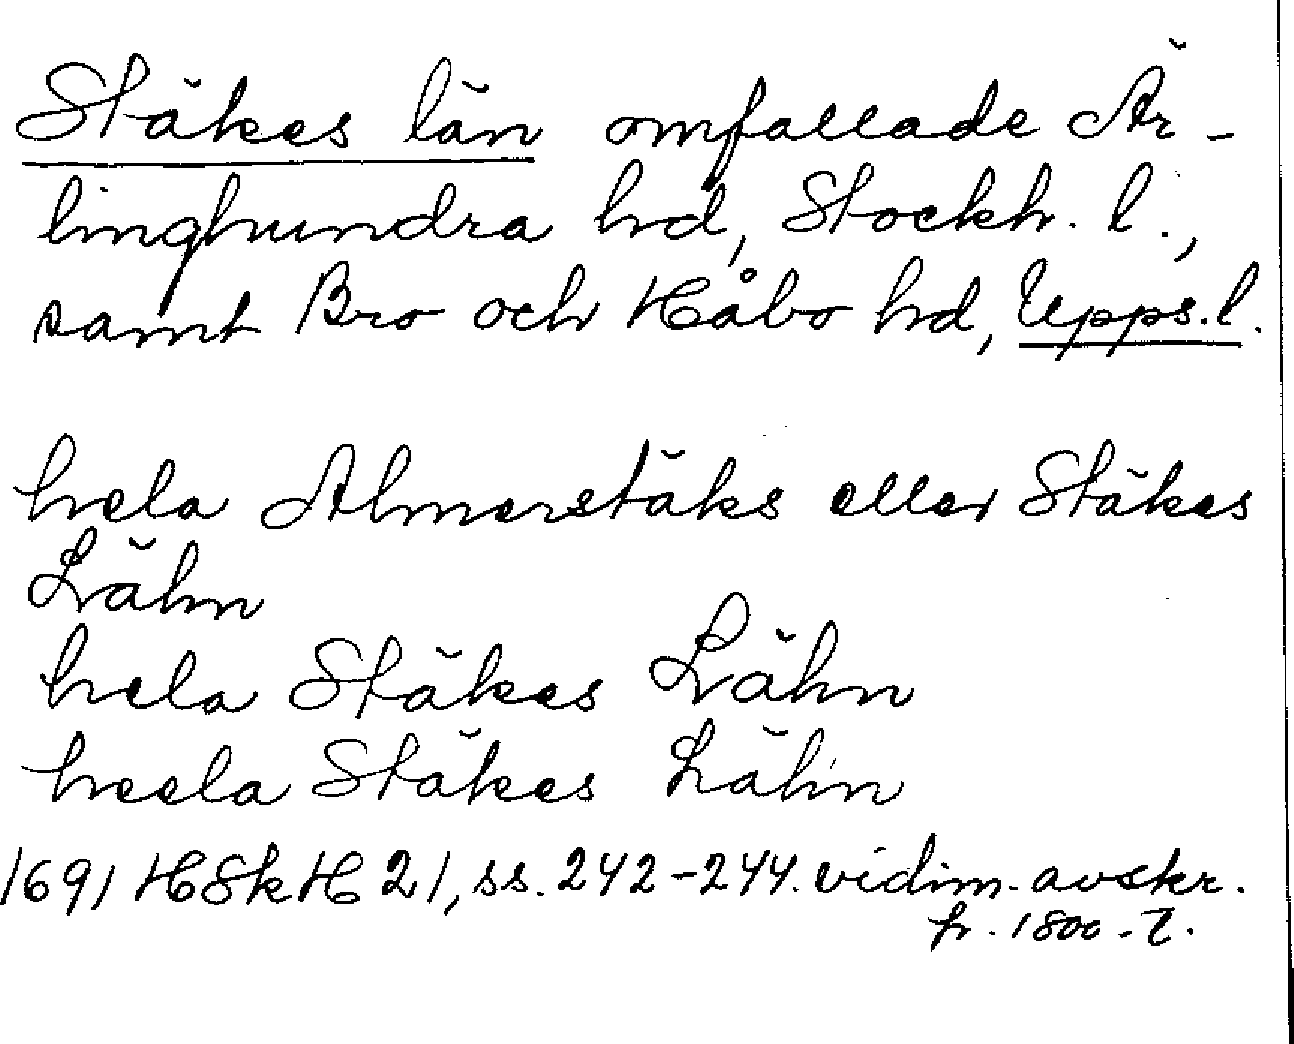 Stäkes län omfallade Är-
linghundra hd, Stockh. l.,
samt Bro och Håbo hd, Upps. l.
hela Almerstäks eller Stäkes
Lähn
hela Stäkes Lähn
heela Stäkes Lähn
1691 HSkH 21, ss. 242-244. vidim. avskr.
fr. 1800-t.